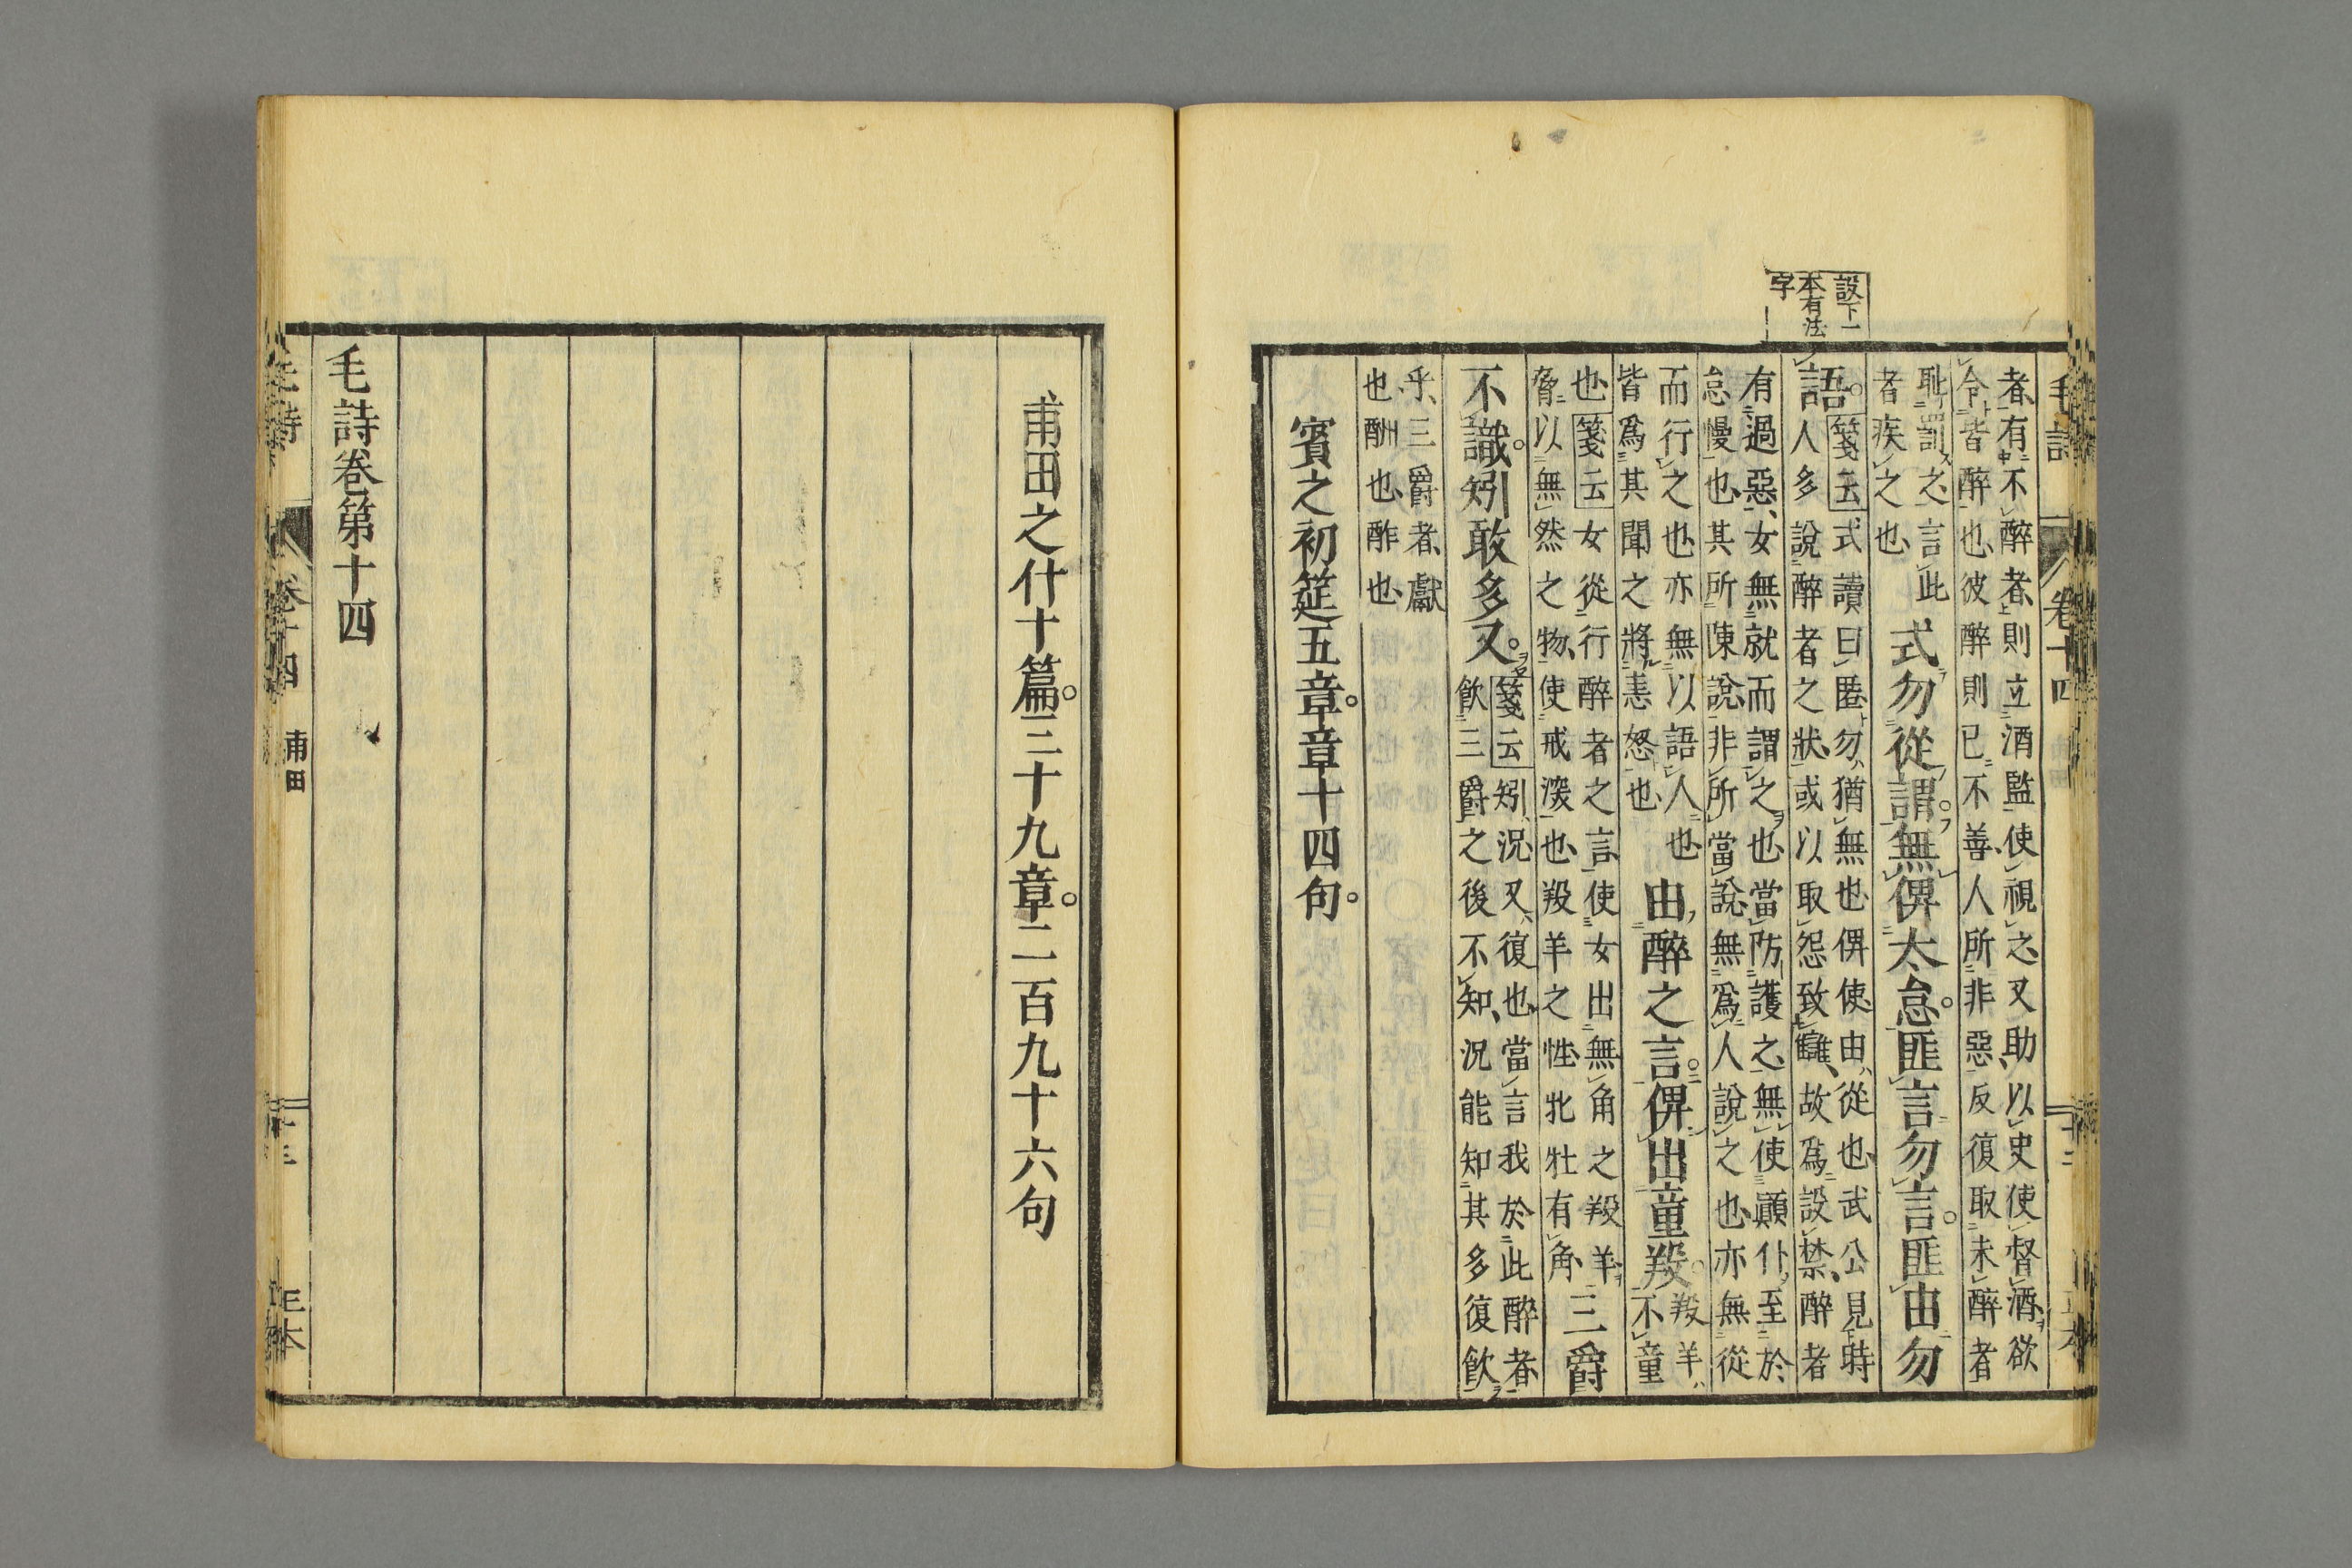 設下一
本有法
字
毛詩
卷十四
者有不醉者則立酒監使視之又助以史使督酒欲
令皆醉也彼醉則已不善人所非惡反復取未醉者
恥罰之言此
者疾之也
式勿從謂無俾太怠匪言勿言匪由勿
語
箋云式讀曰慝勿猶無也俾使由從也武公見時
人多說醉者之狀或以取怨致讎故爲設禁醉者
有過惡女無就而謂之也當防護之無使顚仆至於
怠慢也其所陳說非所當說無爲人說之也亦無從
而行之也亦無以語人也
皆爲其聞之將恚怒也
由醉之言俾出童羖
羖羊
不童
也箋云女從行醉者之言使女出無角之羖羊
脅以無然之物使戒深也羖羊之性牝牡有角
三爵
不識矧敢多又
箋云矧況又復也當言我於此醉者
飲三爵之後不知況能知其多復飲
乎三爵者獻
也酬也酢也
賓之初筵五章章十四句
甫田之什十篇三十九章二百九十六句
毛詩卷第十四
毛詩
卷十四
甫田